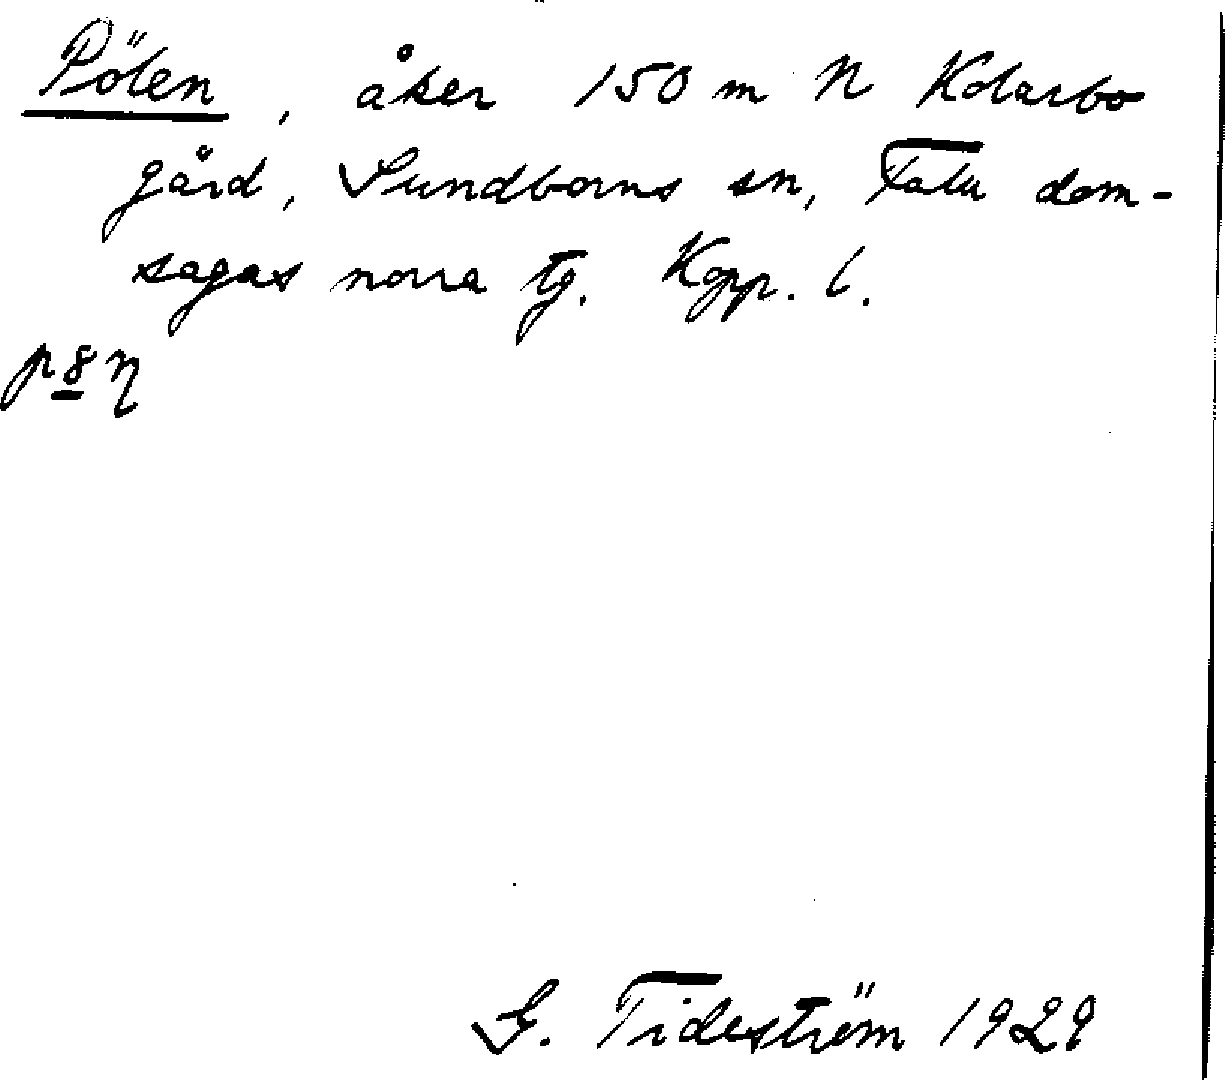 Pölen, åker 150 m N Kolarbo
gård, Sundborns sn, Falu dom-
sagas norra tg. Kopp. l.
G. Tideström 1929